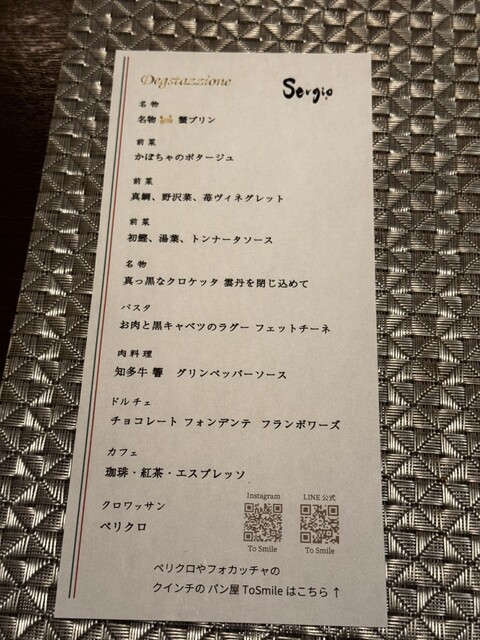 Degstazzione
Sergio
名物
名物 蟹プリン
前菜
かぼちゃのポタージュ
前菜
真鯛、野沢菜、苺ヴィネグレット
前菜
初鰹、湯葉、トンナータソース
名物
真っ黒なクロケッタ 雲丹を閉じ込めて
パスタ
お肉と黒キャベツのラグー フェットチーネ
肉料理
知多牛 響 グリンペッパーソース
ドルチェ
チョコレート フォンデンテ フランボワーズ
カフェ
珈琲・紅茶・エスプレッソ
クロワッサン
ペリクロ
Instagram
LINE 公式
To Smile
To Smile
ペリクロやフォカッチャの
クインチの パン屋 ToSmile はこちら ↑